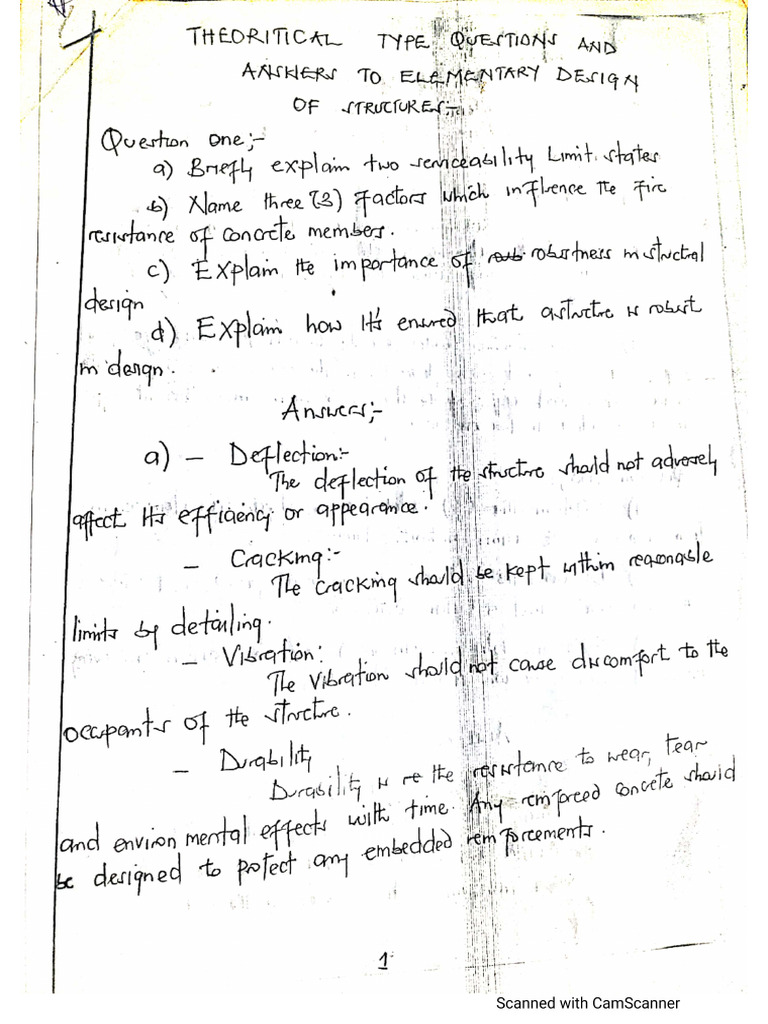 THEORITICAL TYPE QUESTIONS AND
ANSWERS TO ELEMENTARY DESIGN
OF STRUCTURES;-
Question one;-
a) Briefly explain two serviceability Limit states
b) Name three (3) Factors which influence the fire
resistance of concrete members.
c) Explain the importance of robustness in structral
design
d) Explain how it's ensured that astructre is robust
in design.
Answers;-
a) - Deflection:-
The deflection of the structure should not adversely
affect its efficiency or appearance.
- Cracking:-
The cracking should be kept within reasonable
limits by detailing.
- Vibration:
The vibration should not cause discomfort to the
occupants of the structure.
- Durability
Durability is the resistance to wear, tear
and environmental effects with time. Any reinforced concrete should
be designed to protect any embedded reinforcements.
1
Scanned with CamScanner